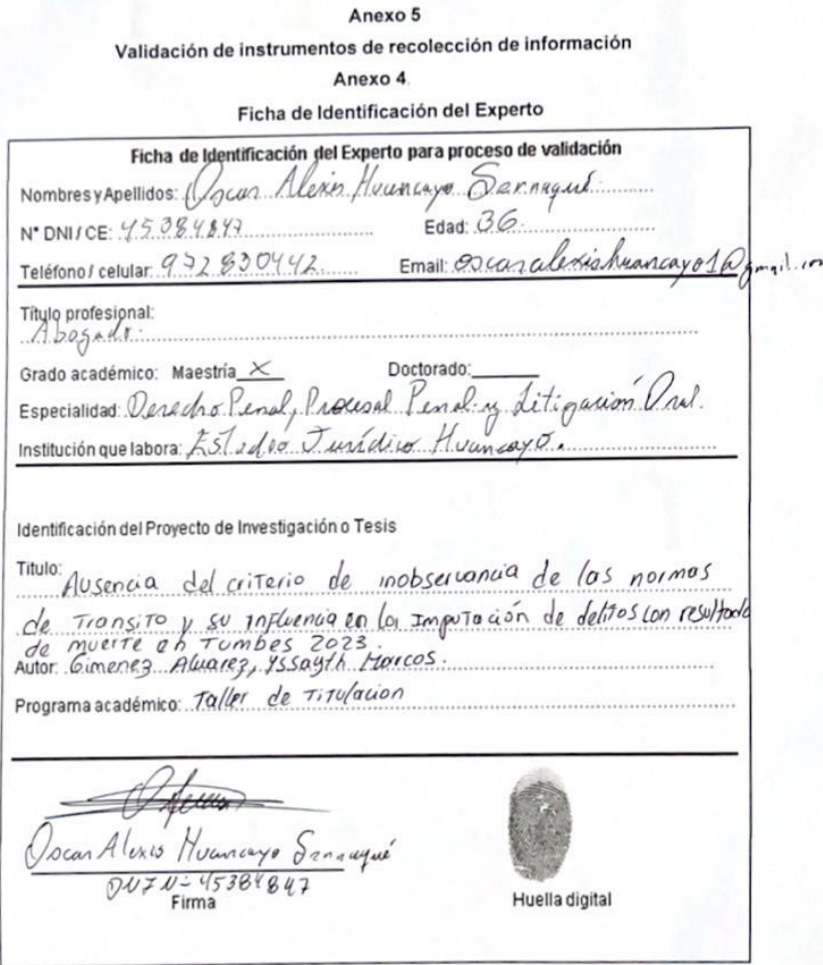 Anexo 5
Validación de instrumentos de recolección de información
Anexo 4.
Ficha de Identificación del Experto
Ficha de Identificación del Experto para proceso de validación
Nombres y Apellidos: Oscar Alexis Huancayo Sernaqué
N° DNI / CE: 45384847 Edad: 36
Teléfono / celular: 972830442 Email: oscaralexishuancayo1@gmail.com
Título profesional:
Abogado.
Grado académico: Maestría X Doctorado:
Especialidad: Derecho Penal, Procesal Penal y Litigación Oral.
Institución que labora: Estudio Jurídico Huancayo.
Identificación del Proyecto de Investigación o Tesis
Titulo: Ausencia del criterio de inobservancia de las normas
de Transito y su influencia en la Imputación de delitos con resultado
de muerte en Tumbes 2023.
Autor: Gimenez Alvarez, Yssayth Marcos.
Programa académico: Taller de Titulacion
Oscar Alexis Huancayo Sernaqué
DNI N- 45384847
Firma
Huella digital